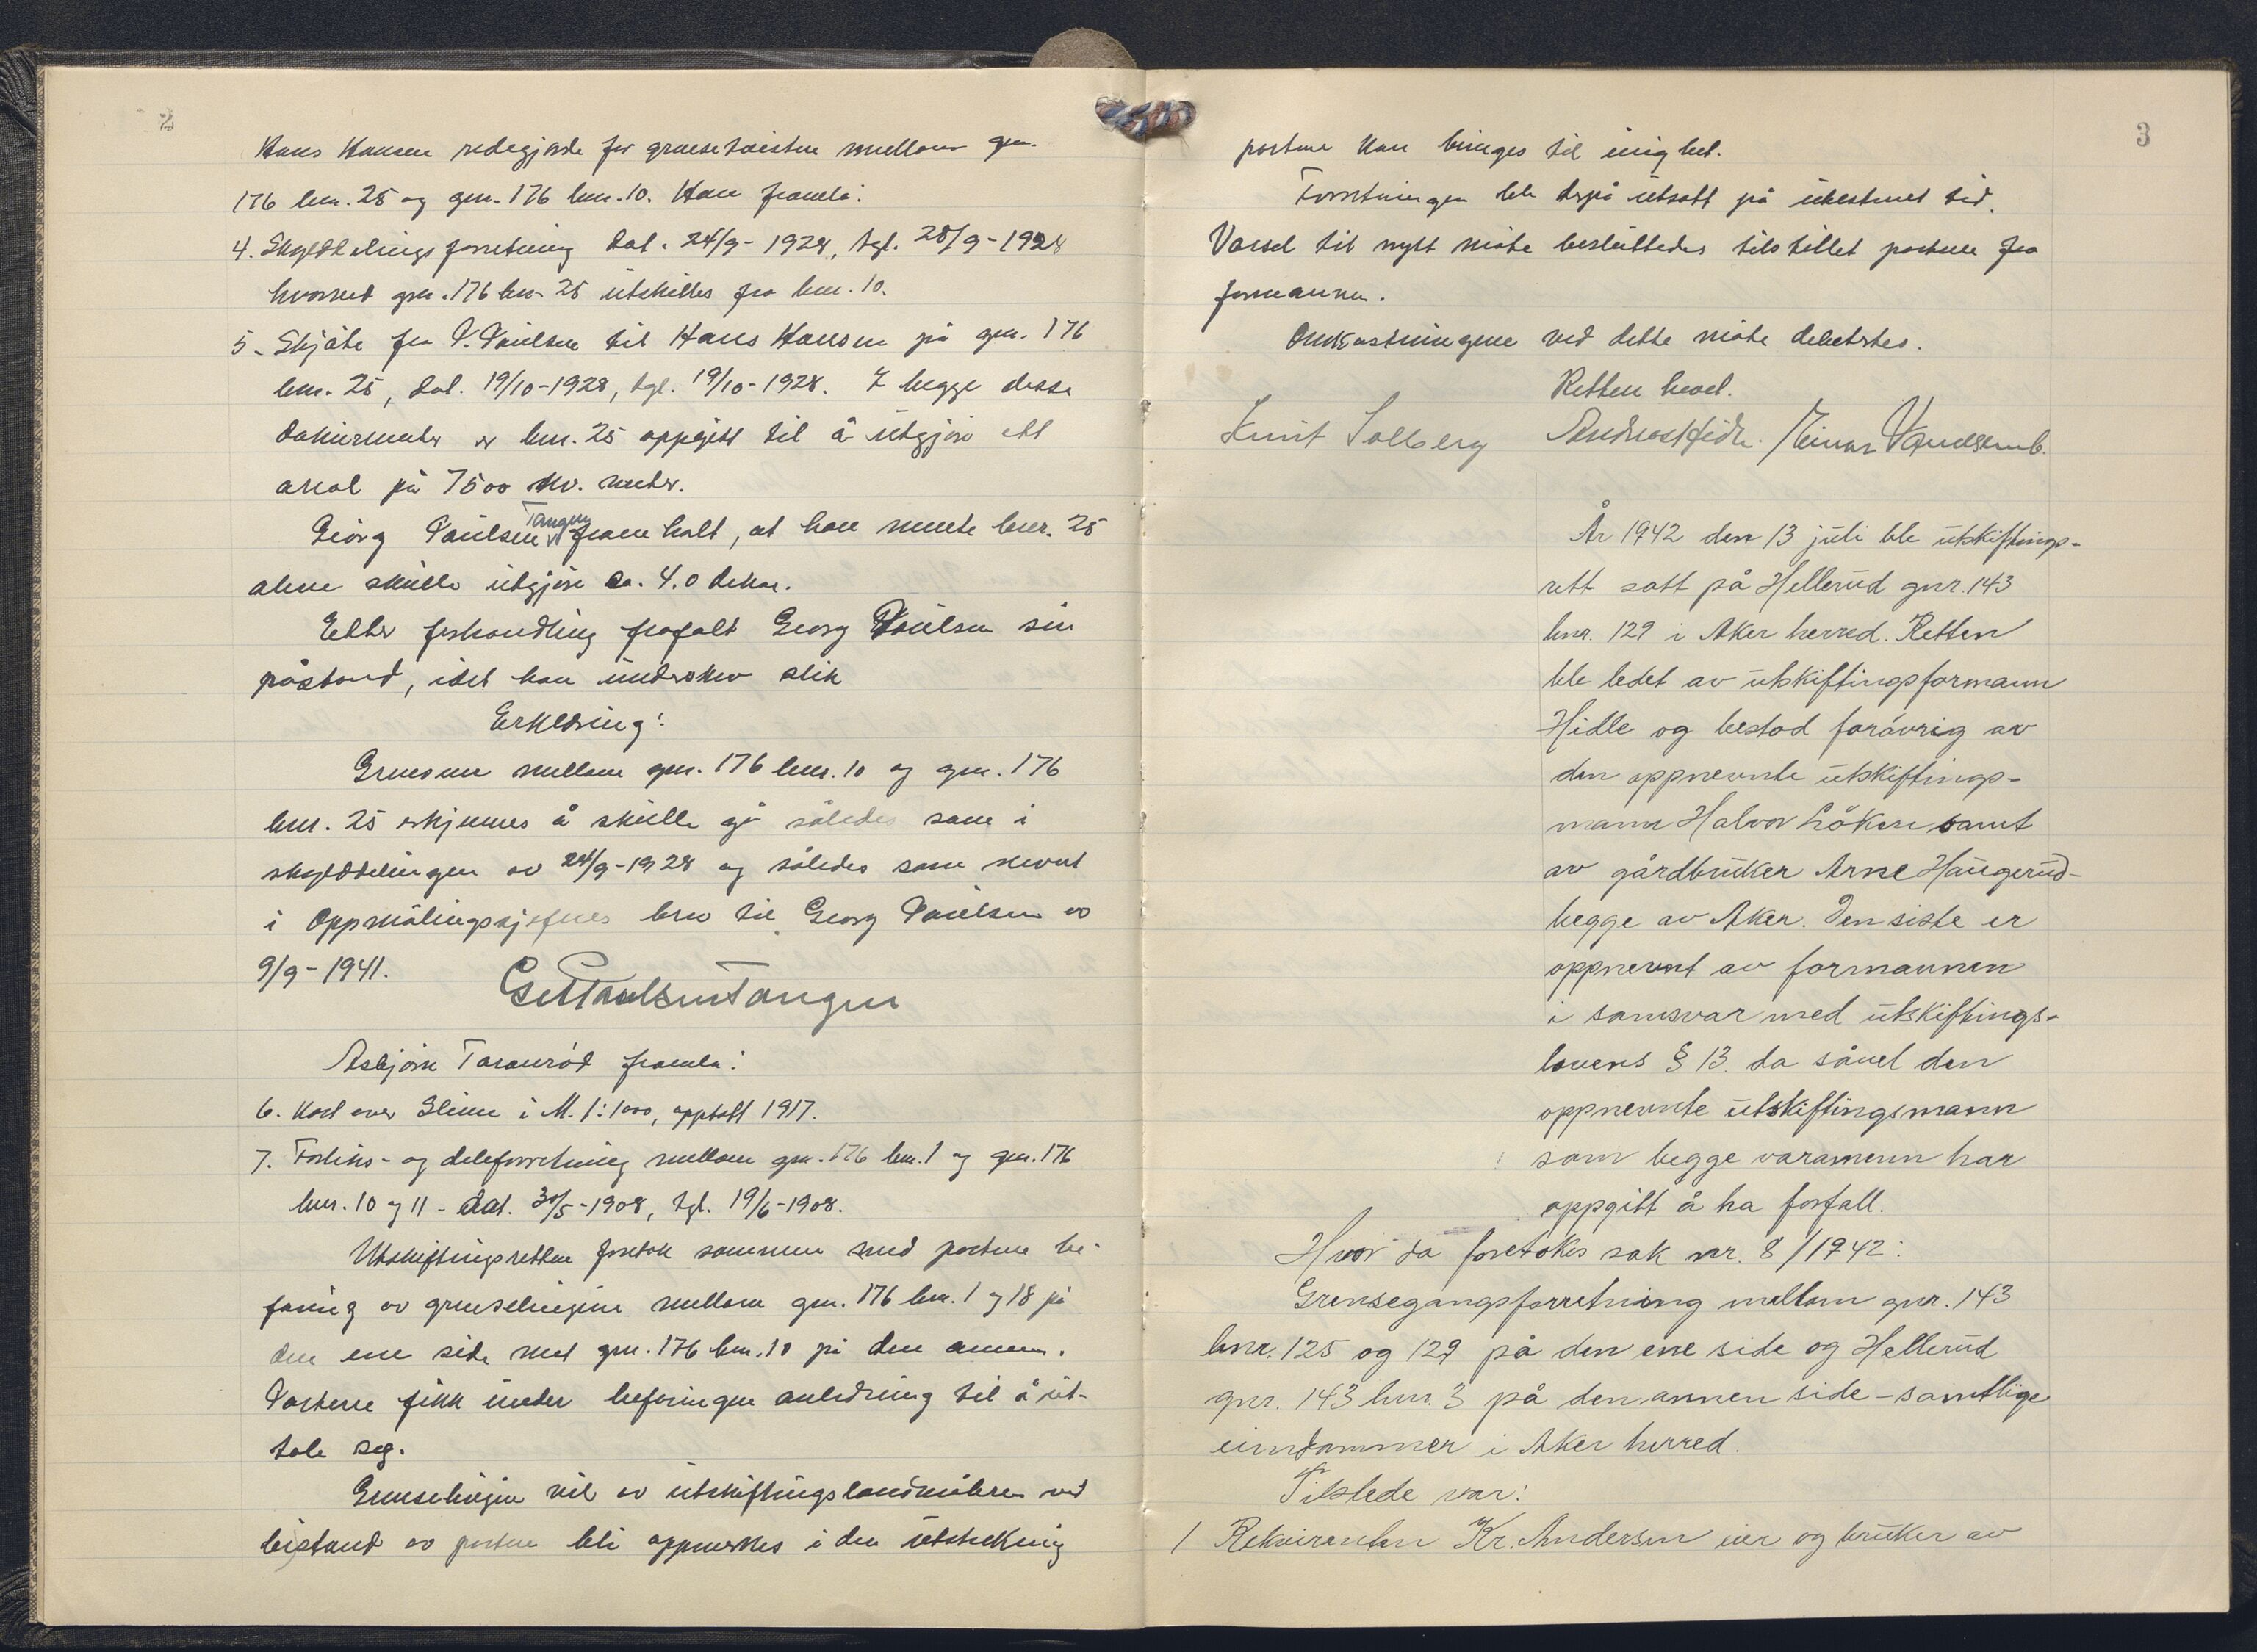 2
Hans Hansen redegjorde for grensetvisten mellom gnr.
176 bnr. 25 og gnr. 176 bnr. 10. Han framla:
4. Skylddelingsforretning dat. 24/9-1928, tgl. 28/9-1928
hvorved gnr. 176 bnr. 25 utskilles fra bnr. 10.
5. Skjøte fra P. Paulsen til Hans Hansen på gnr. 176
bnr. 25, dat. 19/10-1928, tgl. 19/10-1928. I begge disse
dokumenter er bnr. 25 oppgitt til å utgjøre ett
areal på 7500 kv. meter.
Georg Paulsen Tangen framholt, at han mente bnr. 25
alene skulle utgjøre ca. 4.0 dekar.
Etter forhandling frafalt Georg Paulsen sin
påstand, idet han underskrev slik
Erklæring:
Grensen mellom gnr. 176 bnr. 10 og gnr. 176
bnr. 25 erkjennes å skulle gå således som i
skylddelingen av 24/9-1928 og således som nevnt
i Oppmålingssjefens brev til Georg Paulsen av
9/9-1941.
Paulsen Tangen
Asbjørn Taranrød framla:
6. Kart over Slime i M. 1:1000, opptatt 1917.
7. Forliks- og deleforretning mellom gnr. 176 bnr. 1 og gnr. 176
bnr. 10 og 11 - dat. 30/5-1908, tgl. 19/6-1908.
Utskiftingsretten foretok sammen med partene be-
faring av grenselinjene mellom gnr. 176 bnr. 1 og 18 på
den ene side mot gnr. 176 bnr. 10 på den annen.
Partene fikk under befaringen anledning til å ut-
tale seg.
Grenselinjen vil av utskiftingslandmåleren ved
bistand av partene bli oppmerket i den utstrekning
3
partene kan bringes til enighet.
Forretningen ble derpå utsatt på ubestemt tid.
Varsel til nytt møte besluttedes tilstillet partene fra
formannen.
Omkostningene ved dette møte debetertes.
Retten hevet.
Knut Solberg Andreas Hidle. Einar
År 1942 den 13 juli ble utskiftings-
rett satt på Hellerud gnr. 143
bnr. 129 i Aker herred. Retten
ble ledet av utskiftingsformann
Hidle og bestod forøvrig av
den oppnevnte utskiftings-
mann Halvor Løken samt
av gårdbruker Arne Haugerud-
begge av Aker. Den siste er
oppnevnt av formannen
i samsvar med utskiftings-
lovens § 13. da såvel den
oppnevnte utskiftingsmann
som begge varamenn har
oppgitt å ha forfall.
Hvor da foretokes sak nr. 8/1942:
Grensegangsforretning mellom gnr. 143
bnr. 125 og 129 på den ene side og Hellerud
gnr. 143 bnr. 3 på den annen side - samtlige
eiendommer i Aker herred.
Tilstede var:
1 Rekvirenten Kr. Andersen eier og bruker av